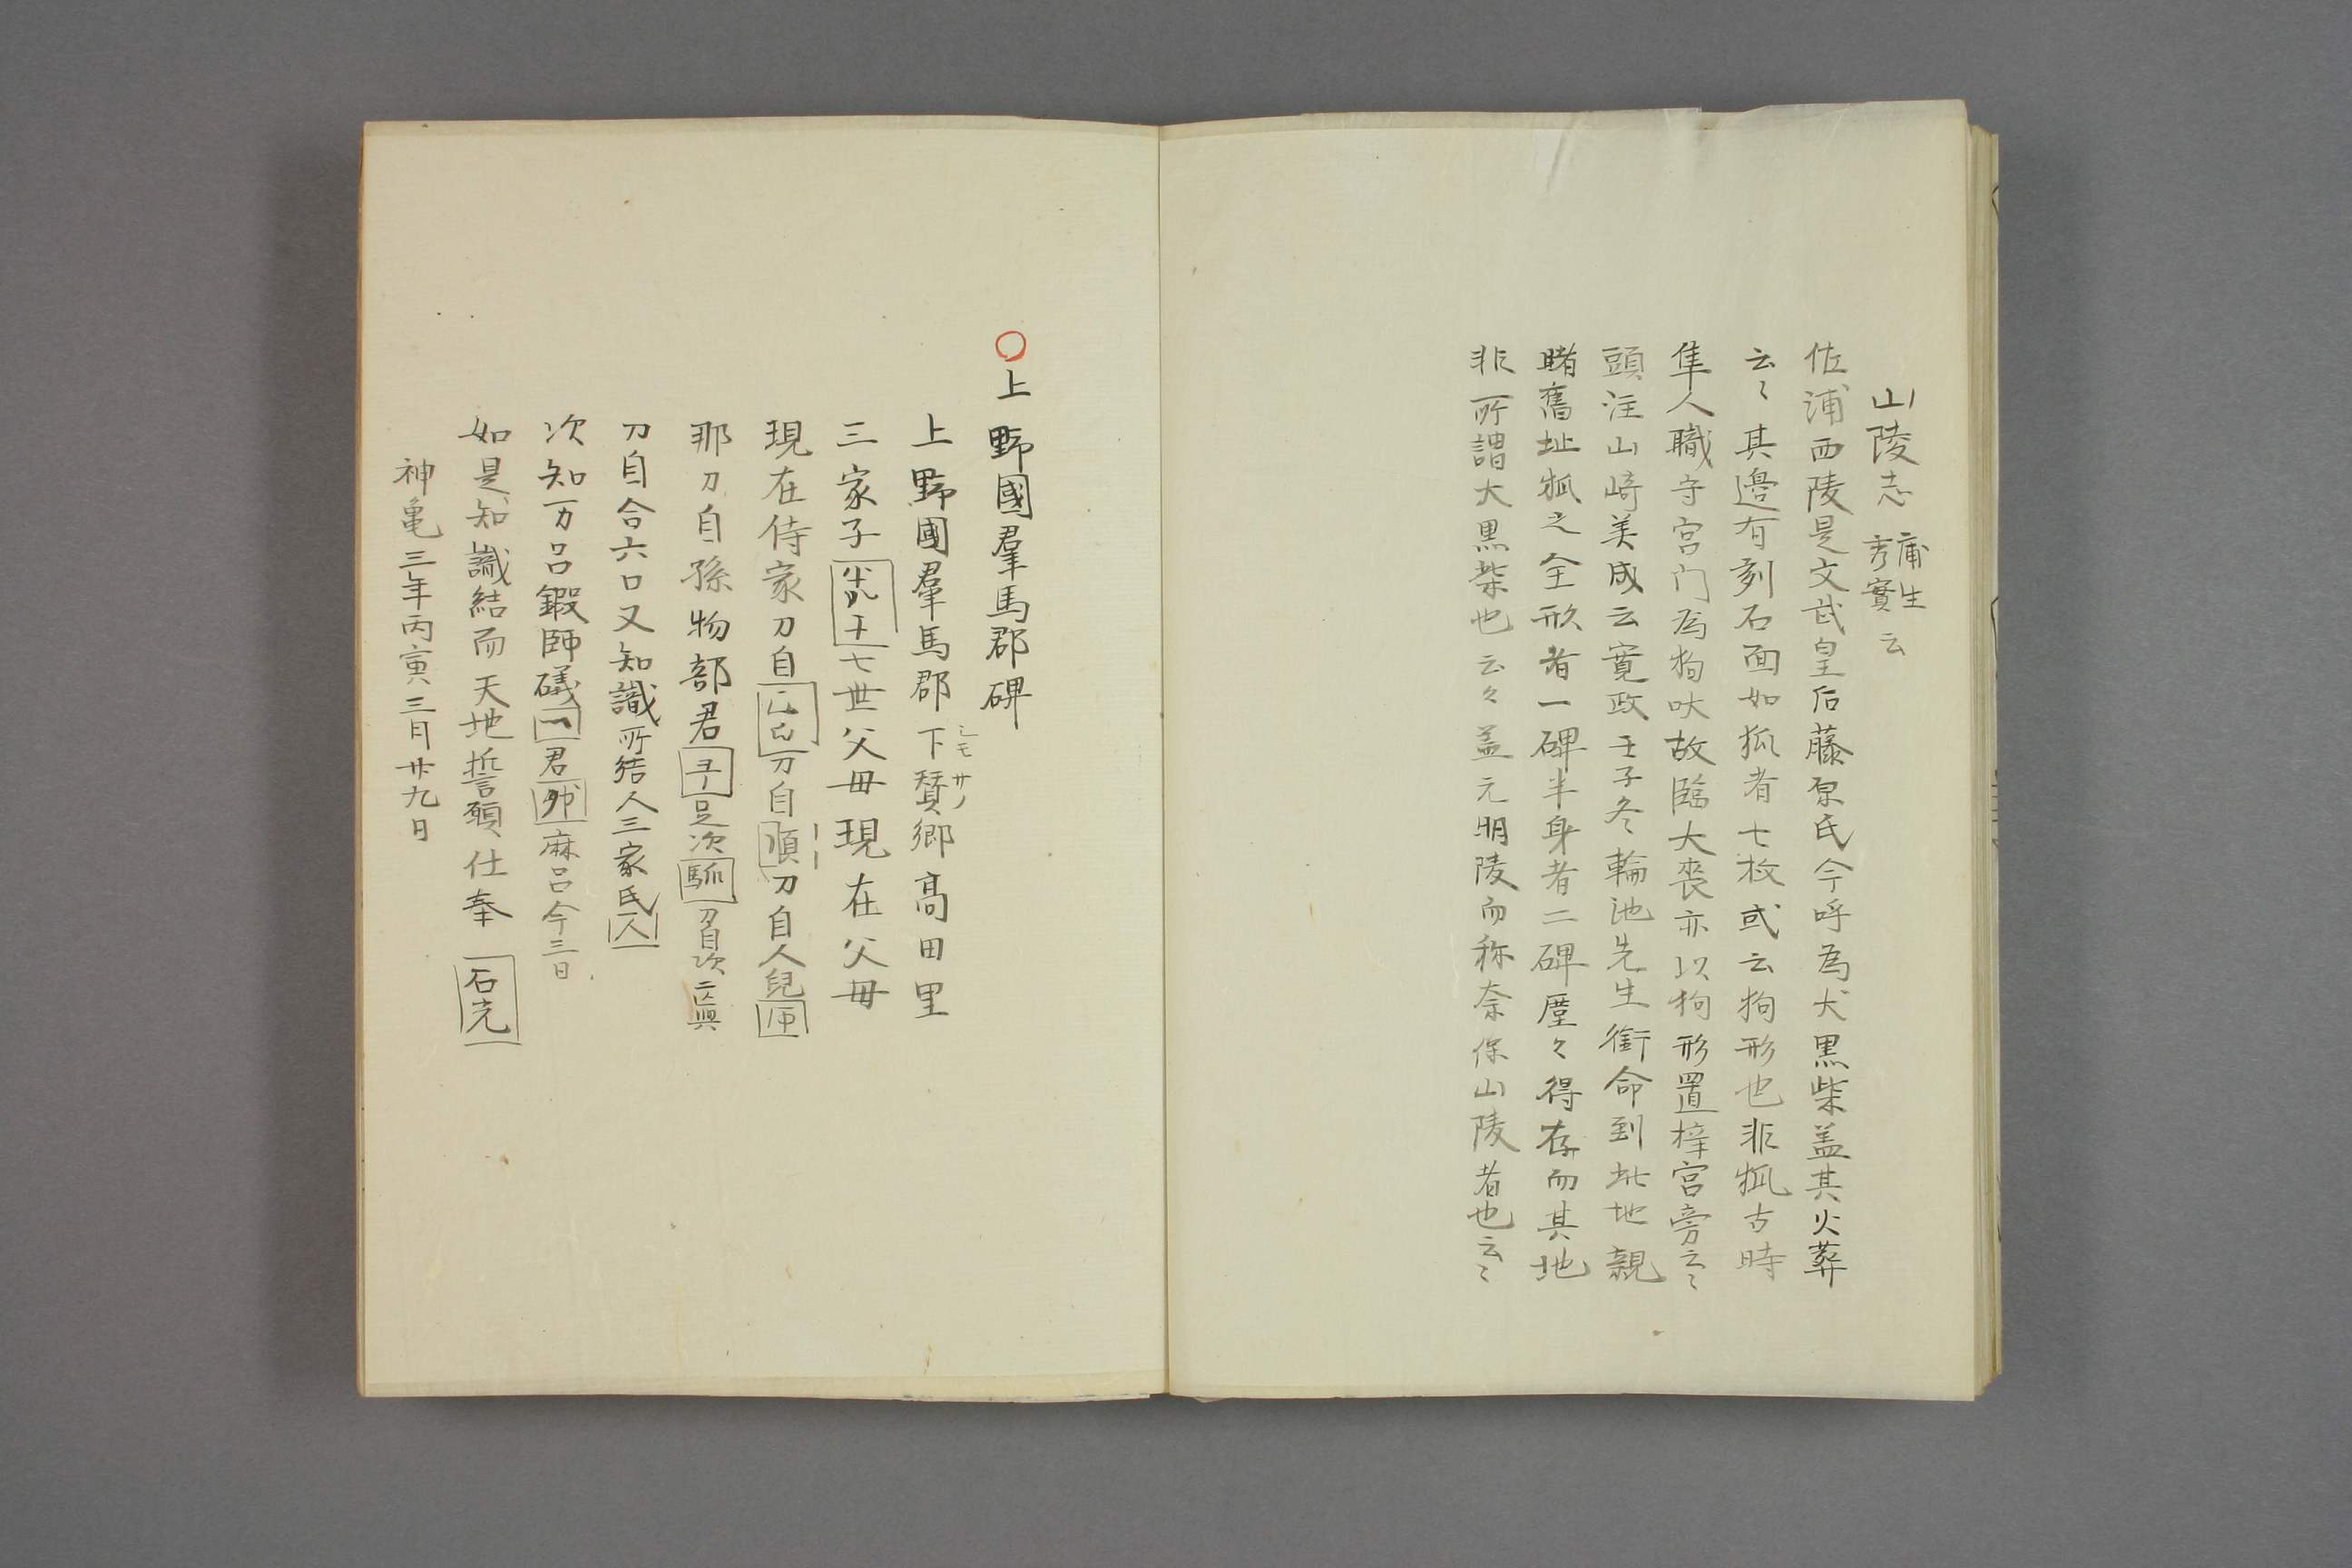 山陵志 蒲生秀實云
佐浦西陵是文武皇后藤原氏今呼為犬黒柴盖其火葬
云〻其邊有刻石面如狐者七枚或云狗形也非狐古時
隼人職守宮门為狗吠故臨大喪亦以狗形置梓宮旁云〻
頭注山崎美成云寛政壬子冬輪池先生銜命到此地親
睹舊址狐之全形者一碑半身者二碑廑々得存而其地
非所謂大黒柴也云々盖元明陵而称奈保山陵者也云〻
〇上野國羣馬郡碑
上野國羣馬郡下賛郷高田里
シモ サノ
三家子七世父母現在父母
現在侍家刀自刀自頂刀自人兒
那刀自孫物部君足次馸刀自次
刀自合六口又知識所结人三家氏人
次知万呂鍜師礒君麻呂今三日
如是知識結而天地誓願仕奉 石光
神亀三年丙寅三月廿九日